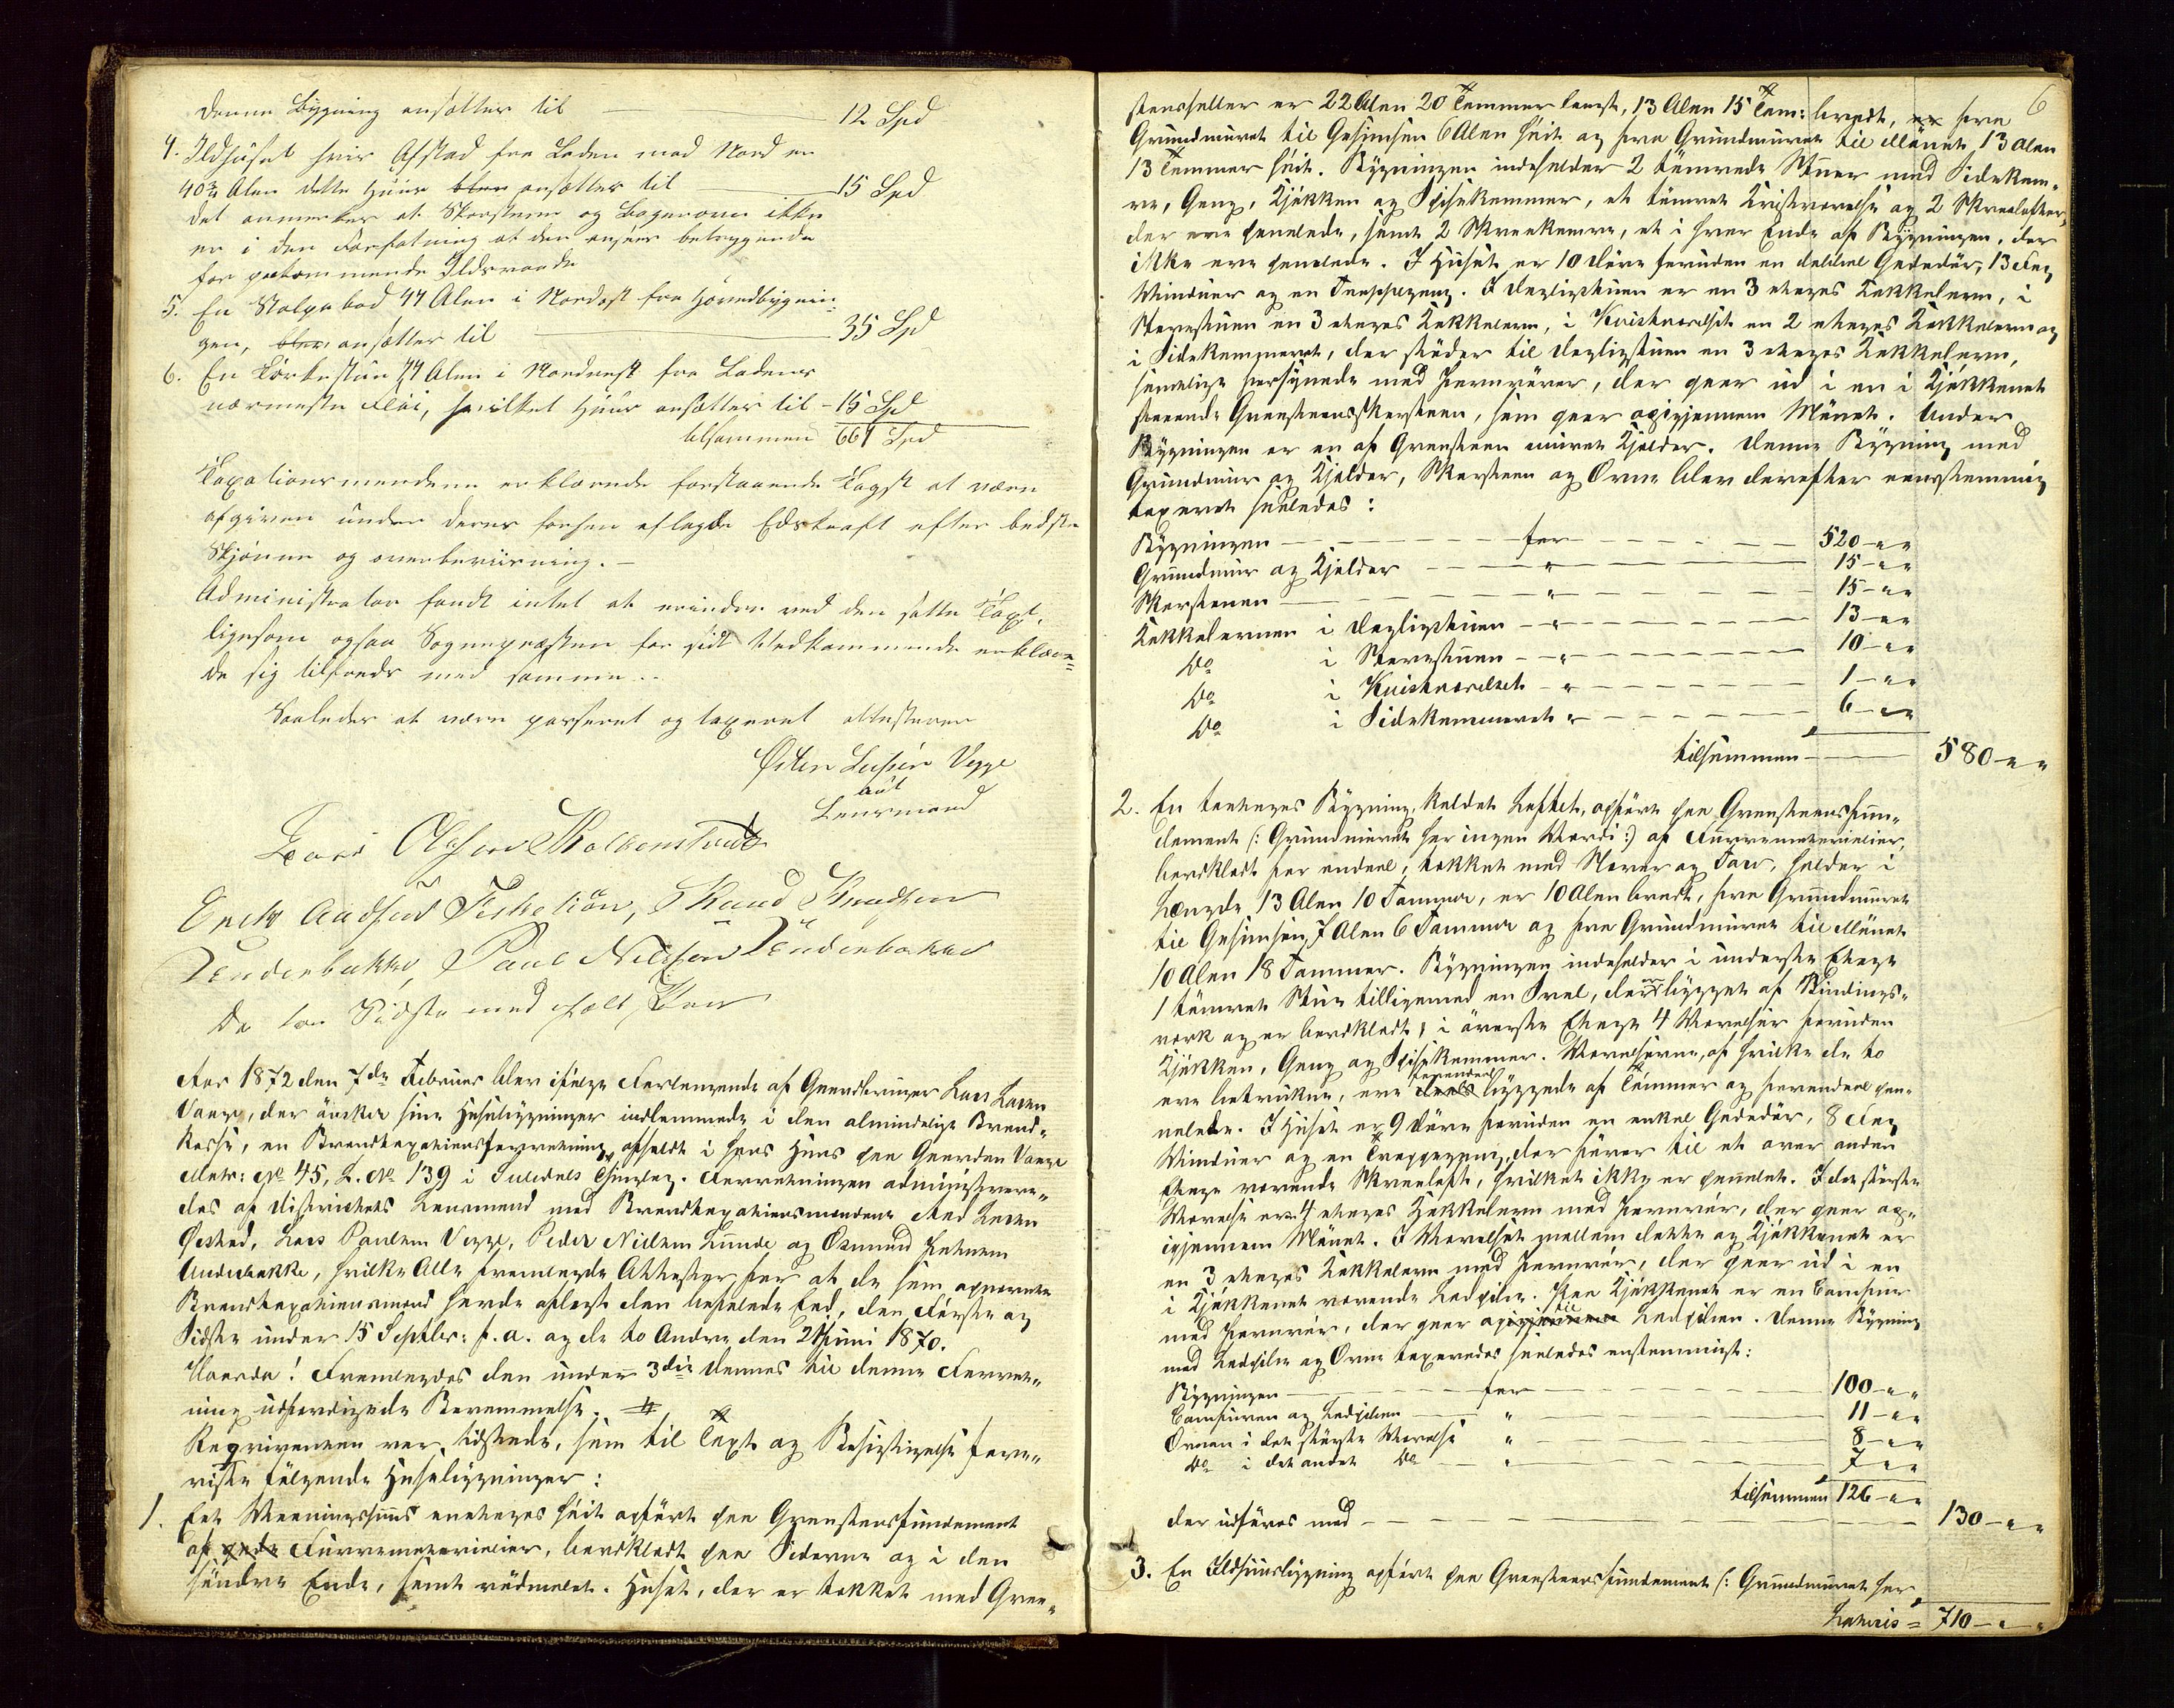 denne Bygning ansættes til — 12 Spd
4. Ildhuset hvis Afstad fra Laden mod Nord er
40¾ Alen dette Huus blev ansættes til — 15 Spd
det anmerkes at Skorstenen og Bagerovn ikke
er i den Forfatning at den ansees betryggende
for paakommende Ildsvaade
5. En Stolpebod 44 Alen i Nordost fra Hovedbygnin-
gen, blev ansættes til — 35 Spd
6. En Törkestue 44 Alen i Nordvest fra Ladens
nærmeste Flöi, hvilket Huus ansættes til - 15 Spd
tilsammen 661 Spd
Taxationsmændene erklærede forstaaende Taxt at være
afgiven under deres forhen aflagde Edskraft efter bedste
Skjönne og overbeviisning. —
Administrator fandt intet at erindre ved den satte Taxt,
ligesom ogsaa Sognepræsten for sidt Vedkommende erklære-
de sig tilfreds med samme. —
Saaledes at være passeret og taxeret attesterer
Östen Larsen Vegge
const
Lensmand
Lars Olsen
Erik Aadsen, Knud Knudsen
Tendenbakke, Paul Nilssen Tendenbakke
De to Sidste med paaholdt Pen
Aar 1872 den 7de Februar blev ifölge Forlangende af Gaardbruger Lars Larsen
Vaage, der önsker sine Huusbygninger indlemmede i den almindelige Brand-
kasse, en Brandtaxationsforretning afholdt i hans Huus paa Gaarden Vaage
Matr: No 45, L. No 139 i Suledals Thinglag. Forretningen administrere-
des af Districtets Lensmand med Brandtaxationsmændene Aad Larsen
Östad, Lars Paulsen Vegge, Peder Nielsen Lunde og Osmund
bakke, hvilke Alle fremlagde Attester for at de som opnævnte
Brandtaxationsmænd havde aflagt den befalede Eed, den Förste og
Sidste under 15 Septbr: f. a. og de to Andre den 21 Juni 1870.
Hvorda! Fremlagdes den under 3die dennes til denne Forret-
ning udfærdigede Berammelse.
Reqvirenten var tilstede, som til Taxt og Besigtigelse fore-
viste fölgende Huusbygninger:
1. Et Vaaningshuus eenetages höit opfört paa Graasteensfundament
af gode Furrematerialier, bordklædt paa Siderne og i den
söndre Ende, samt rödmalet. Huset, der er tækket med Graa-
6
steensheller er 22 Alen 20 Tommer langt, 13 Alen 15 Tom: bredt, er fra
Grundmuren til Gesimsen 6 Alen höit og fra Grundmuren til Mönet 13 Alen
13 Tommer höit. Bygningen indeholder 2 tömrede Stuer med Sidekam-
re, Gang, Kjökken og Spisekammer, et tömret Kvistværelse og 2 Skraalofter,
der ere panelede, samt 2 Skraakamre, et i hver Ende af Bygningen, der
ikke ere panelede. I Huset er 10 Döre foruden en dobbel Gadedör, 13 Fag
Vinduer og en Trappegang. I Dagligstuen er en 3 etages Kakkelovn, i
Storestuen en 3 etages Kakkelovn, i Kvistværelset en 2 etages Kakkelovn og
i Sidekammeret, der stöder til Dagligstuen en 3 etages Kakkelovn,
samtlige forsynede med Jernrörer, der gaar ud i en i Kjökkenet
staaende Graasteensskorsteen, som gaar opigjennem Mönet. Under
Bygningen er en af Graasteen muret Kjelder. Denne Bygning med
Grundmur og Kjelder, Skorsteen og Ovne blev derefter eenstemmig
taxeret saaledes:
Bygningen — for — 520 - " "
Grundmur og Kjelder — " — 15 - " "
Skorstenen — " — 15 - " "
Kakkelovnen i Dagligstuen — " — 13 - " "
Do i Storestuen — " — 10 - " "
Do i Kvistværelset — " — 1 - " "
Do i Sidekammeret " — 6 - " "
tilsammen — 580 - " "
2. En toetages Bygning, kaldet Loftet, opfört paa Graasteensfun-
dament (: Grundmuren har ingen Værdi :) af Furrematerialier,
bordklædt for endeel, tækket med Næver og Torv, holder i
Længde 13 Alen 10 Tommer, er 10 Alen bredt, fra Grundmuren
til Gesimsen 7 Alen 6 Tommer og fra Grundmuren til Mönet
10 Alen 18 Tommer. Bygningen indeholder i underste Etage
1 tömret Stue tilligemed en Sval, der er bygget af Bindings-
værk og er bordklædt; i överste Etage 4 Værelser foruden
Kjökken, Gang og Spisekammer. Værelserne, af hvilke de to
ere betrukne, ere deels forendeel byggede af Tömmer og forendeel pan-
nelede. I Huset er 9 Döre foruden en enkel Gadedör, 8 Fag
Vinduer og en Trappegang, der förer til et over anden
Etage værende Skraaloft, hvilket ikke er panelet. I det störste
Værelse er en 4 etages Kakkelovn med Jernrör, der gaar op-
igjennem Mönet. I Værelset mellem dette og Kjökkenet er
en 3 etages Kakkelovn med Jernrör, der gaar ud i en
i Kjökkenet værende Ladpibe. Paa Kjökkenet er en Comfuur
med Jernrör, der gaar opigjennem til Ladpiben. Denne Bygning
med Ladpibe og Ovne taxeredes saaledes enstemmigt:
Bygningen — for — 100 - " "
Comfuren og Ladpiben — " — 11 - " "
Ovnen i det störste Værelse " — 8 - " "
Do i det andet Do — " — 7 - " "
tilsammen 126 - " "
der udföres med — 130 - " "
3. En Ildhuusbygning opfört paa Graasteensfundament (: Grundmuren har
Lateris = 710 - " "